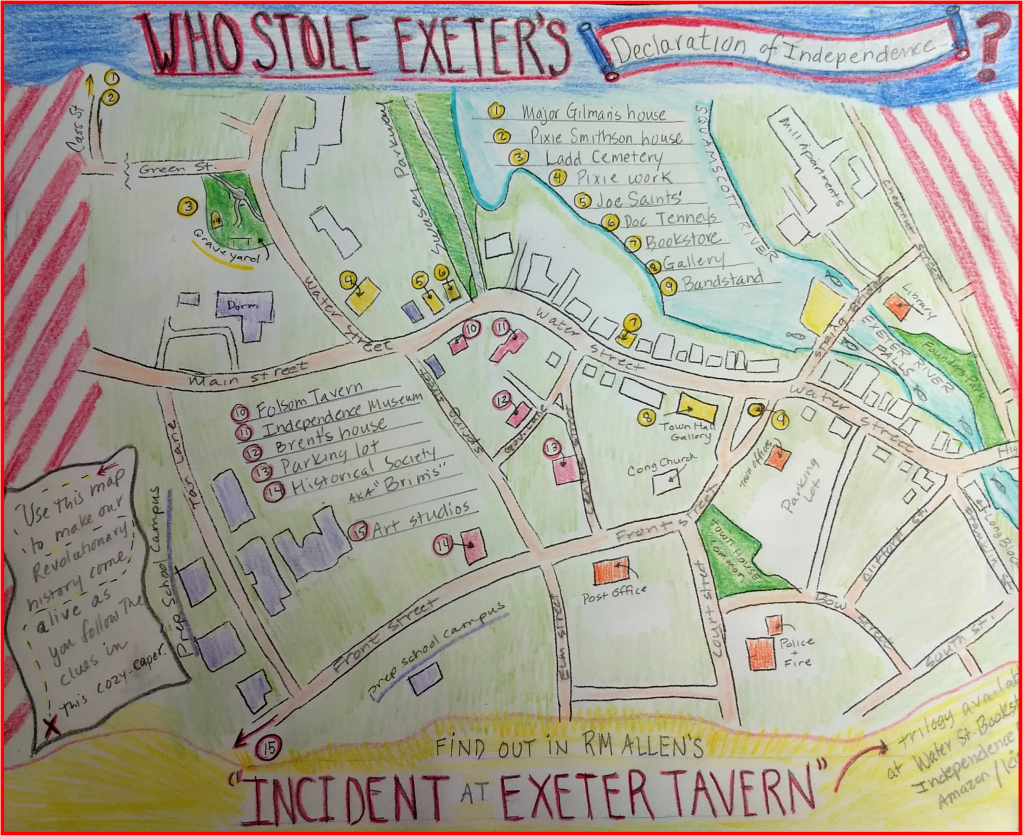 WHO STOLE EXETER'S
Declaration of Independence
?
1
2
Pass St
Green St.
3
Graveyard
Swasey Parkway
1 Major Gilman's house
2 Pixie Smithson house
3 Ladd Cemetery
4 Pixie work
5 Joe Saints'
6 Doc Tenney's
7 Bookstore
8 Gallery
9 Bandstand
SQUAMSCOTT RIVER
Mill Apartments
Chestnut Street
Library
String Bridge
EXETER RIVER
FALLS
Founders Park
4
5
6
Water Street
Dorm
Main street
10
11
Water
street
7
Water
Street
High
10 Folsom Tavern
11 Independence Museum
12 Brent's house
13 Parking lot
14 Historical Society
AKA "Brim's"
15 Art studios
Spring Street
12
13
8
Town Hall
Gallery
9
Cong Church
Town offices
Parking
Lot
Tan Lane
Prep School Campus
14
Front Street
Front street
Town House
Common
Post Office
Elm street
Court street
Bow
street
Clifford St.
South St.
Franklin St.
Long Block
Police
+
Fire
Prep school campus
Use this map
to make our
Revolutionary
history come
alive as
you follow the
clues in
this cozy-caper.
X
15
FIND OUT IN RM ALLEN'S
"INCIDENT AT EXETER TAVERN"
trilogy
at Water St. 
Independence
Amazon